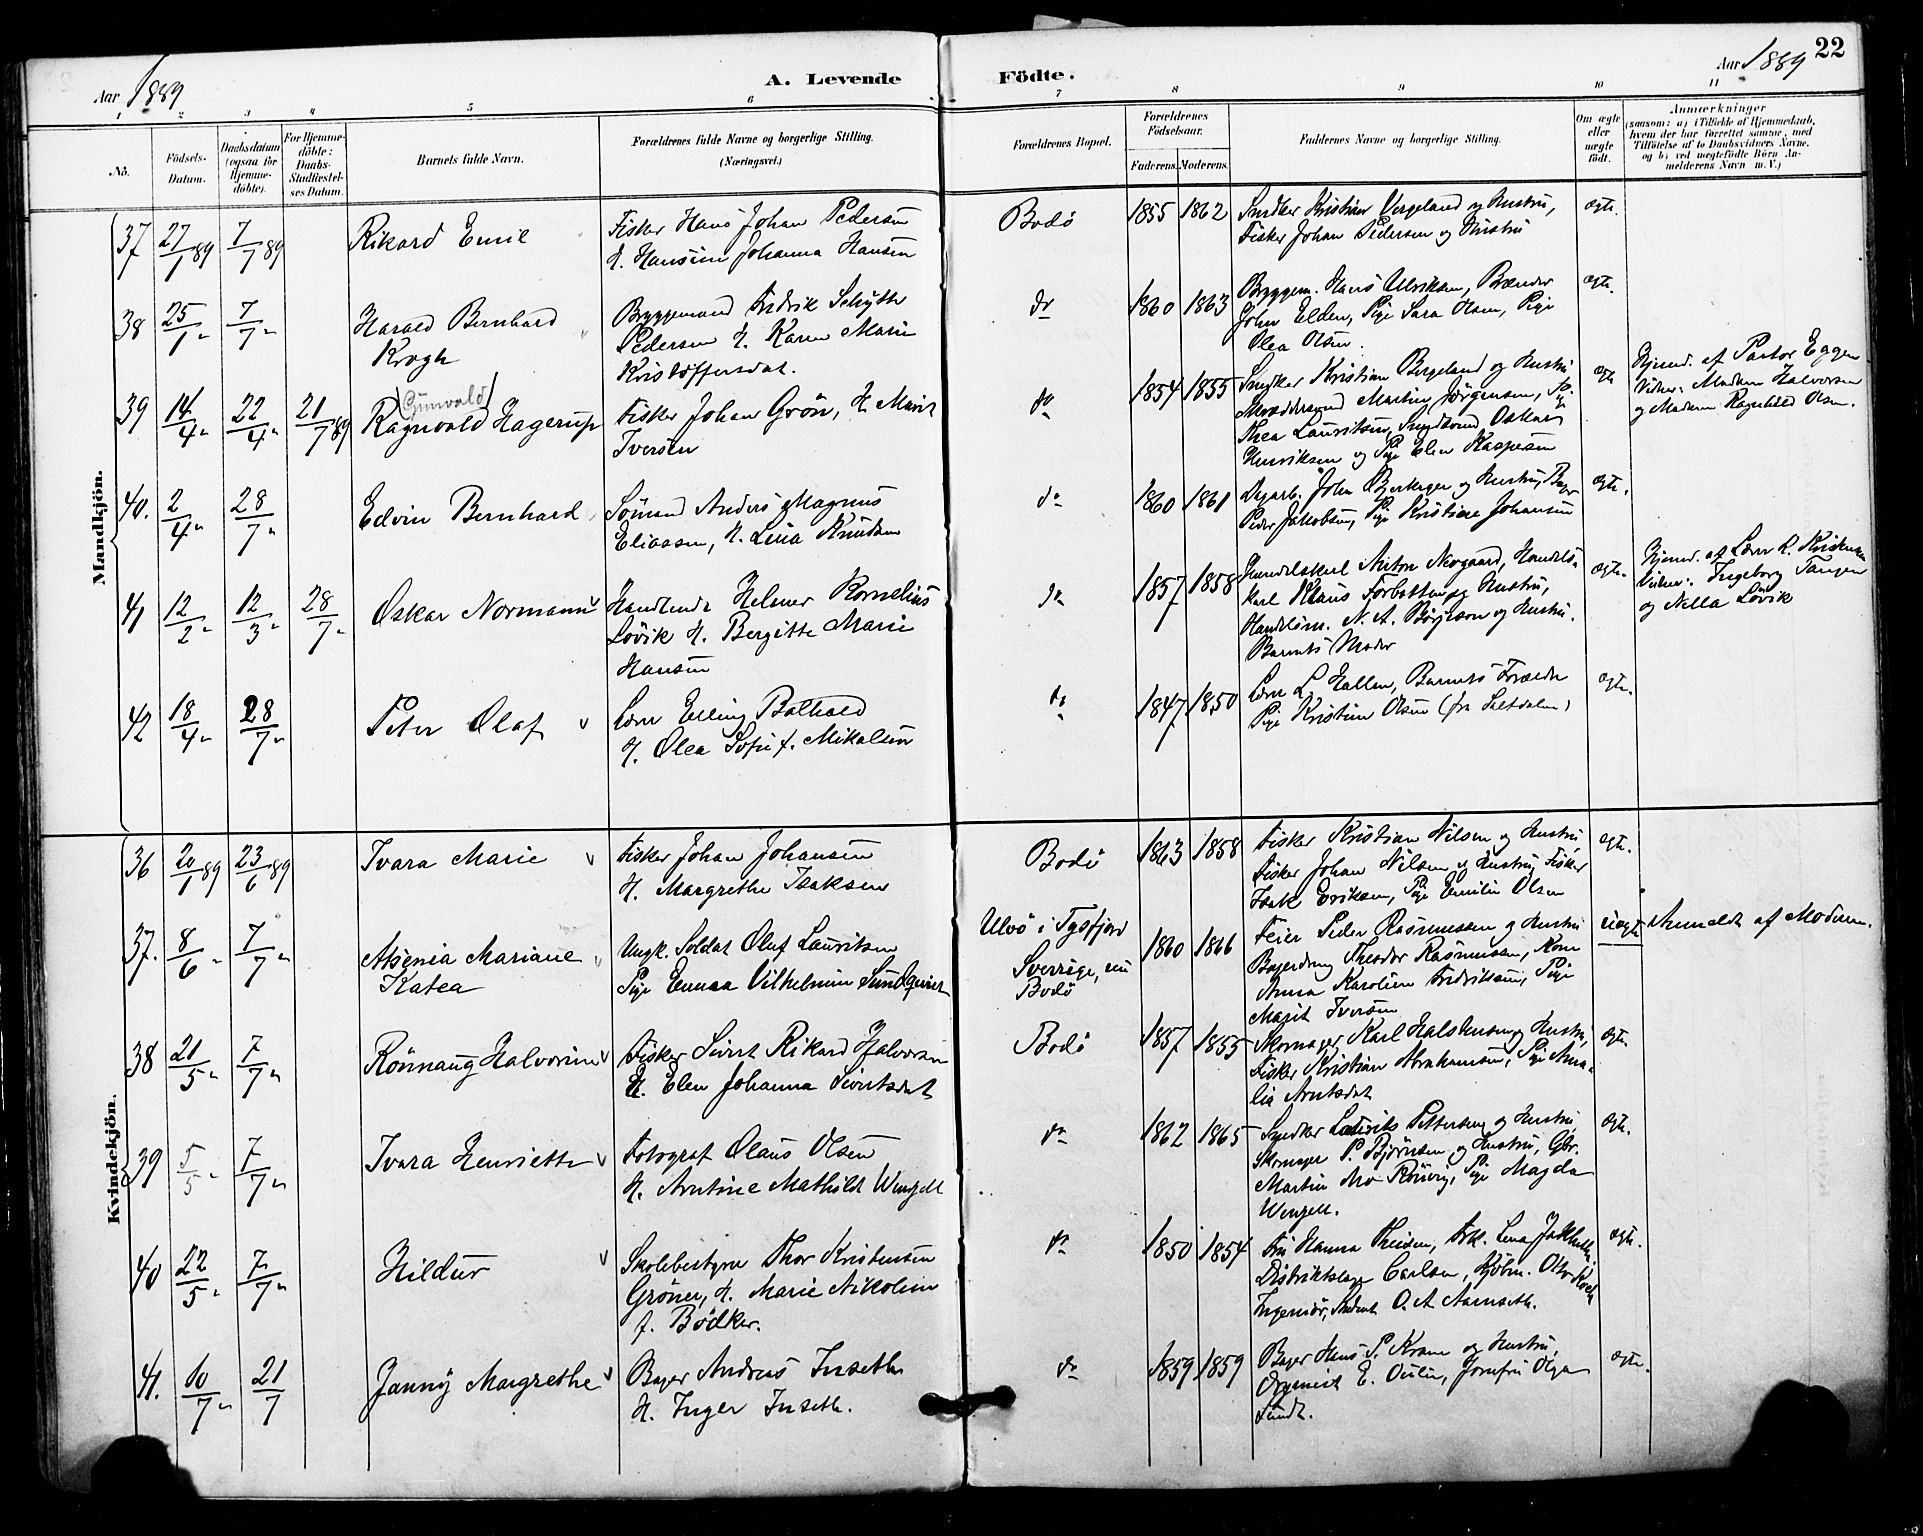 Aar 1889
A. Levende Födte.
Aar 1889
22
1 2 3 4 5 6 7 8 9 10 11
No.
Födsels-Datum.
Daabsdatum (ogsaa for Hjemme-döbte).
For Hjemme-döbte: Daabs-Stadfæstel-ses Datum.
Barnets fulde Navn.
Forældrenes fulde Navne og borgerlige Stilling. (Næringsvei.)
Forældrenes Bopæl.
Forældrenes Födselsaar.
Faderens. Moderens.
Faddernes Navne og borgerlig Stilling.
Om ægte eller uægte födt.
Anmærkninger
(saasom: a) i Tilfælde af Hjemmedaab, hvem der har forrettet samme, med Tilföielse af to Daabsvidners Navne, og b) ved uægtefödte Börn An-melderens Navn m. V.)
Mandkjön.
37 27/1 89 7/7 89 Rikard Emil
Fisker Hans Johan Pedersen
H. Hansine Johanna Hansen
Bodö 1855 1862
Snedker Kristian Vergeland og Hustru,
Fisker Johan Pedersen og Hustru
ægte.
38 25/1 " 7/7 " Harald Bernhard
Krogh
Bryggemand Fredrik Schytte
Pedersen H. Karen Marie
Kristoffersdat.
do 1860 1863
Bryggem. Hans Ulriksen, Brænder
John Elden, Pige Sara Olsen, Pige
Olea Olsen.
ægte.
39 14/4 " 22/4 " 21/7 89 (Gunvald)
Ragnvald Hagerup
Fisker Johan Grön, H. Marit
Iversen
do 1854 1855
Snedker Kristian Bergeland og Hustru
Skræddersvend Martin Jörgensen, Pige
Thea Lauritsen, Smedsvend Oskar
Henriksen og Pige Elen Kaspersen
ægte
Hjemd. af Pastor Eggen
Vidner: Madam Halvorsen
og Madam Ragnhild Olsen.
40. 2/4 " 28/7 " Edvin Bernhard
Sömand Anders Magnus
Eliassen, H. Lina Knudsen
do 1860 1861
Dagarb. John Bjerkager og Hustru,
Peder Jakobsen, Pige Kristine Johansen
ægte.
41 12/2 " 12/3 " 28/7 " Oskar Normann
Handlende Helmer Kornelius
Lövik H. Bergitte Marie
Hansen
do 1857 1858
Handelskarl Anton Norgaard, Handels-
karl Klaus Forbatten og Hustru,
Handelsm. N. A. Börjeson og Hustru.
Barnets Moder
ægte.
Hjemd. af Lærer L. Kristensen
Vidner: Ingeborg Tangen
og Nella Lövik
42 18/4 " 28/7 " Peter Olaf
Lærer Elling Bathold
H. Olea Sofie f. Mikalsen
do 1847 1850
Lærer L. Hallen, Barnets Forældre
Pige Kristine Olsen (fra Saltdalen)
ægte.
Kvindekjön.
36 20/1 89 23/6 89 Ivara Marie
Fisker Johan Johansen
H. Margrethe Isaksen
Bodö 1863 1858
Fisker Kristian Nilsen og Hustru,
Fisker Johan Nilsen og Hustru, Fisker
Isak Eriksen, Pige Emilie Olsen
ægte.
37. 8/6 " 7/7 " Alsenia Mariane
Katea
Ungk. Soldat Oluf Lauritsen
Pige Emma Vilhelmine Sundqvist
Ulvö i Tysfjord
Sverrige, nu
Bodö
1860 1866
Feier Peder Rasmussen og Hustru
Bagerdreng Theodor Rasmussen, Kone
Anna Karoline Fredriksen, Pige
Marit Iversen
uægte
Anmeldt af Moderen.
38 21/5 " 7/7 " Rönnaug Halvorine
Fisker Sivert Rikard Halvorsen
H. Elen Johanna Sivertsdat
Bodö 1857 1855
Skomager Karl Halstensen og Hustru,
Fisker Kristian Abrahamsen, Pige Ama-
lia Arntsdat
ægte
39 5/5 " 7/7 " Ivara Henriette
Fotograf Olaus Olsen
H. Arntine Mathilde Wengell
do 1862 1865
Snedker Laurits Pettersen og Hustru,
Skomager P. Björnsen og Hustru, Gbr.
Martin Mo Rönvig, Pige Magda
Wengell.
ægte.
40 22/5 " 7/7 " Hildur
Skolebestyrer Thor Kristensen
Gröner, H. Marie Nikoline
f. Bödker.
do 1850 1854
Fru Hanna Theisen, Frk. Lena Jakhelln
Distriktslæge Carlsen, Kjöbm. Otto Koch
Ingeniör, Student O. A. Aarseth.
ægte.
41. 10/7 " 21/7 Jannÿ Margrethe
Bager Andreas Inseth
H. Inger Inseth.
do 1859 1859
Bager Hans P. Krane og Hustru,
Organist E. Oulie, Jomfru Olga
Lundt.
ægte.